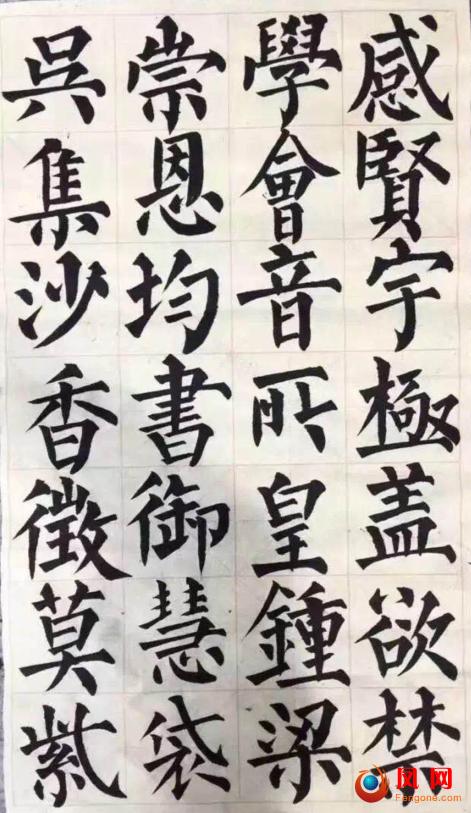 感賢宇極蓋欲禁
學會音所皇鍾梁
崇恩均書御慧袋
吳集沙香徵莫紫
凤网
Fengone.com